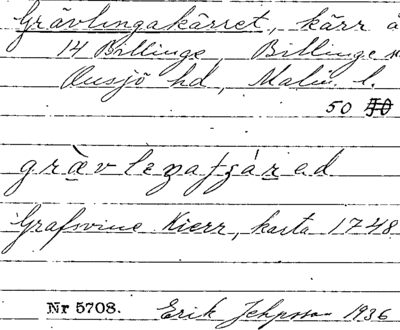 Grävlingakärret, kärr å
14 Billinge, Billinge
Onsjö hd, Malm. l.
50
Grafsvine Kierr, karta 1748
Nr 5708. Erik Jehpsson 1936